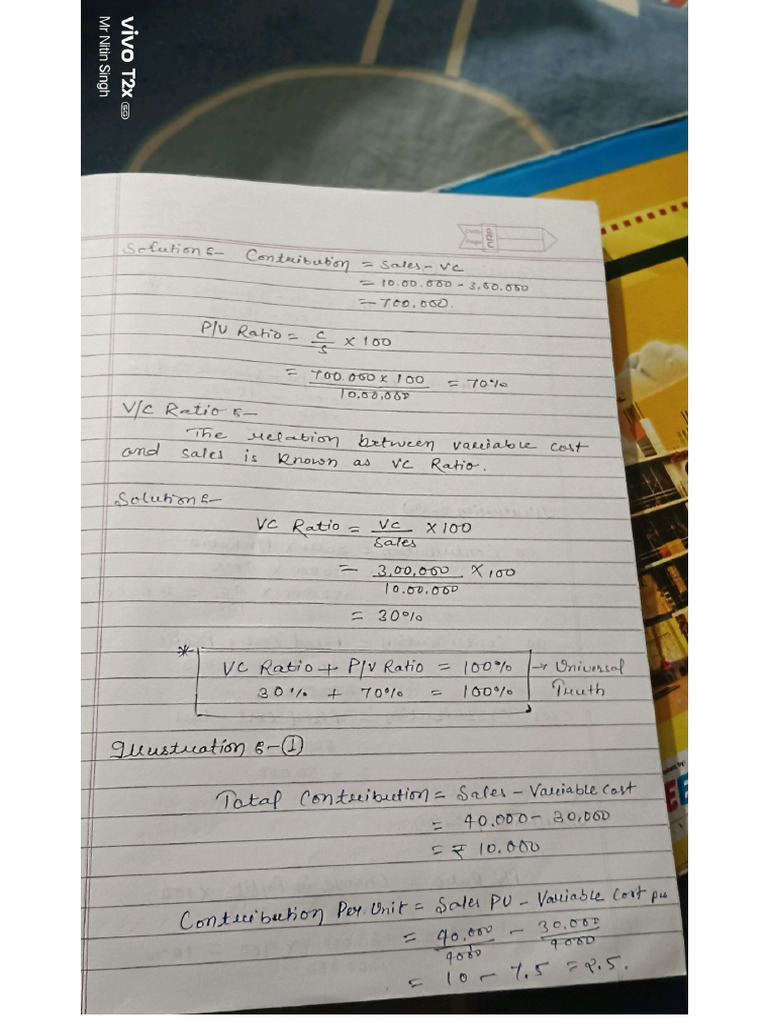 vivo T2x 5G
Mr Nitin Singh
Solution:- Contribution = Sales - VC
= 10,00,000 - 3,00,000
= 700,000.
P/V Ratio = C/S × 100
= 700,000 × 100 / 10,00,000 = 70%
V/C Ratio:-
The relation between variable cost
and sales is known as VC Ratio.
Solution:-
VC Ratio = VC/Sales × 100
= 3,00,000 / 10,00,000 × 100
= 30%
* VC Ratio + P/V Ratio = 100% → Universal
30% + 70% = 100% Truth
Illustration:- ①
Total Contribution = Sales - Variable cost
= 40,000 - 30,000
= ₹ 10,000
Contribution Per Unit = Sales PU - Variable Cost pu
= 40,000/4000 - 30,000/4000
= 10 - 7.5 = 2.5.